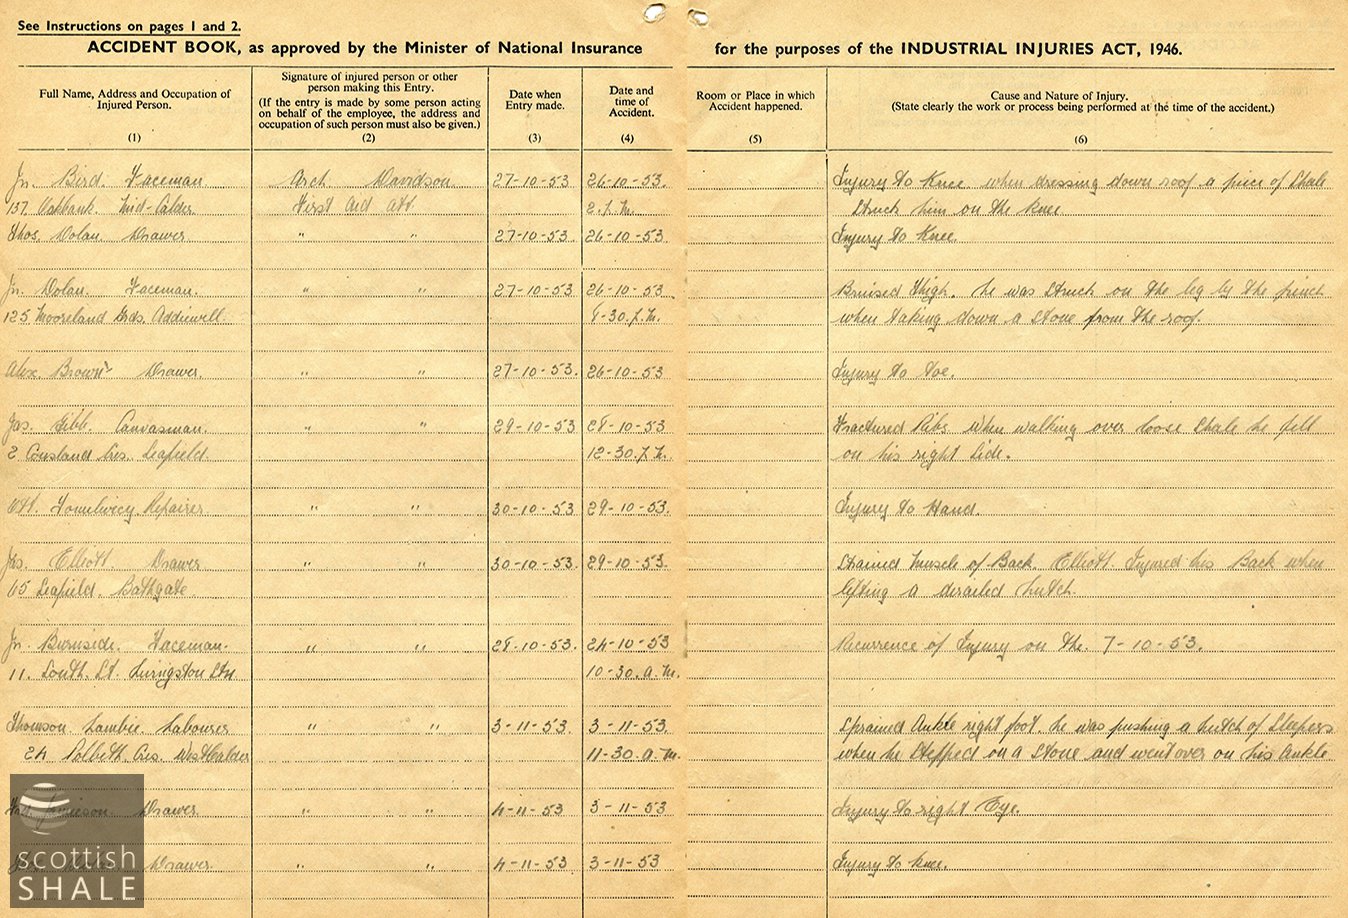 See Instructions on pages 1 and 2.
ACCIDENT BOOK, as approved by the Minister of National Insurance for the purposes of the INDUSTRIAL INJURIES ACT, 1946.
Full Name, Address and Occupation of Injured Person. (1)
Signature of injured person or other person making this Entry. (If the entry is made by some person acting on behalf of the employee, the address and occupation of such person must also be given.) (2)
Date when Entry made. (3)
Date and time of Accident. (4)
Room or Place in which Accident happened. (5)
Cause and Nature of Injury. (State clearly the work or process being performed at the time of the accident.) (6)
Jn. Bird. Faceman. Arch Davidson. 27-10-53 26-10-53. Injury to Knee when dressing down roof a piece of Shale
137 Oakbank. Mid-Calder First Aid Att 2.P.M. Struck him on the knee
Thos. Dolan Drawer " " 27-10-53. 26-10-53 Injury to Knee.
Jn. Dolan. Faceman. " " 27-10-53 26-10-53 Bruised Thigh. he was struck on the leg by the pinch
125 Mooreland Grds. Addiewell. 8-30.P.M. when taking down a stone from the roof.
Alex. Brown Drawer. " " 27-10-53. 26-10-53 Injury to toe.
Jas. Gibb. Canvasman. " " 29-10-53 28-10-53 Fractured Ribs when walking over loose Shale he fell
2 Cousland Cres. Seafield. 12-30.P.M. on his right side.
Wm. Repairer " " 30-10-53 29-10-53. Injury to Hand.
Jas. Elliott. Drawer " " 30-10-53. 29-10-53. Strained Muscle of Back. Elliott. Injured his Back when
65 Seafield. Bathgate lifting a derailed hutch.
Jn. Burnside. Faceman. " " 28-10-53. 24-10-53 Recurrence of Injury on the. 7-10-53.
11. South. St. Livingston Stn 10-30.a.m.
Thomson. Lambie. Labourer " " 3-11-53. 3-11-53. Sprained Ankle right foot. he was pushing a hutch of Sleepers
24 Polbeth Cres. West Calder 11-30.a.m. when he stepped on a stone and went over on his Ankle
Drawer. " " 4-11-53 3-11-53 Injury to right Eye.
Drawer. " " 4-11-53 3-11-53 Injury to knee.
scottish
SHALE